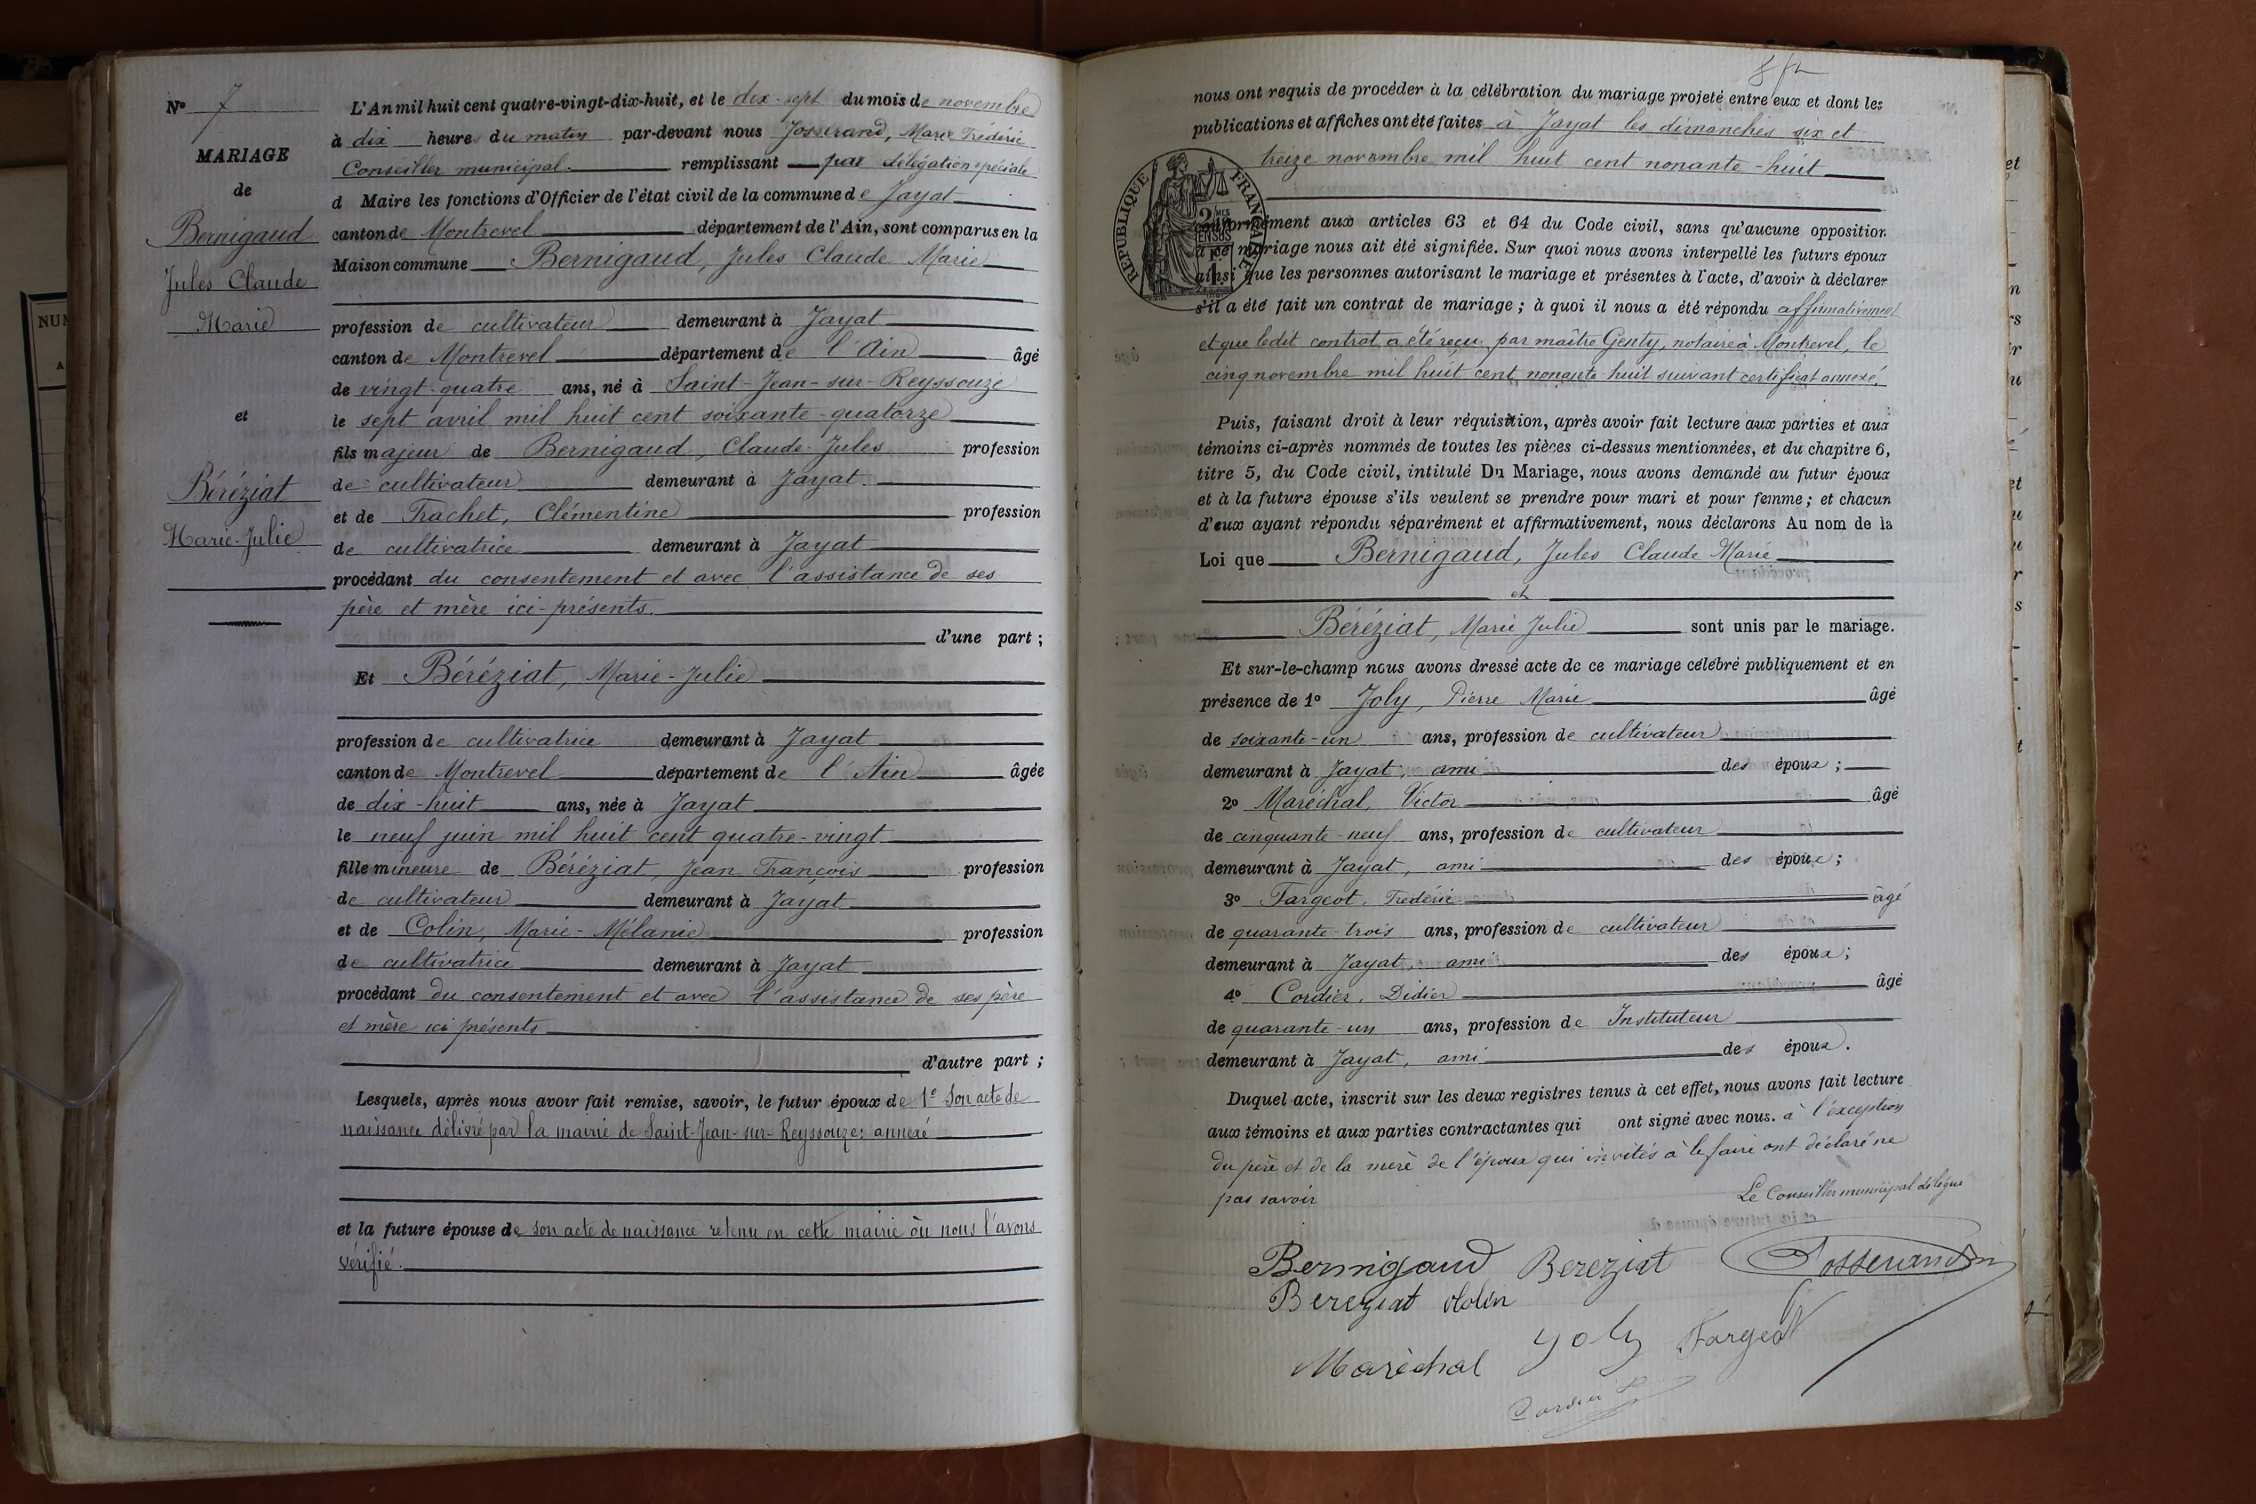 N° 7
MARIAGE
de
Bernigaud
Jules Claude
Marie
et
Béréziat
Marie-Julie
L'An mil huit cent quatre-vingt-dix-huit, et le dix-sept du mois de novembre
à dix heures du matin par-devant nous Josserand, Marie Frédéric
Conseiller municipal remplissant par délégation spéciale
d Maire les fonctions d'Officier de l'état civil de la commune de Jayat
canton de Montrevel département de l'Ain, sont comparus en la
Maison commune Bernigaud, Jules Claude Marie
profession de cultivateur demeurant à Jayat
canton de Montrevel département de l'Ain âgé
de vingt-quatre ans, né à Saint-Jean-sur-Reyssouze
le sept avril mil huit cent soixante-quatorze
fils majeur de Bernigaud, Claude-Jules profession
de cultivateur demeurant à Jayat.
et de Trachet, Clémentine profession
de cultivatrice demeurant à Jayat
procédant du consentement et avec l'assistance de ses
père et mère ici-présents.
d'une part ;
Et Béréziat, Marie-Julie
profession de cultivatrice demeurant à Jayat
canton de Montrevel département de l'Ain âgée
de dix-huit ans, née à Jayat
le neuf juin mil huit cent quatre-vingt
fille mineure de Béréziat, Jean François profession
de cultivateur demeurant à Jayat
et de Colin, Marie-Mélanie profession
de cultivatrice demeurant à Jayat
procédant du consentement et avec l'assistance de ses père
et mère ici présents
d'autre part ;
Lesquels, après nous avoir fait remise, savoir, le futur époux de 1° Son acte de
naissance délivré par la mairie de Saint-Jean-sur-Reyssouze; annexé
et la future épouse de son acte de naissance retenu en cette mairie où nous l'avons
vérifié.
nous ont requis de procéder à la célébration du mariage projeté entre eux et dont les
publications et affiches ont été faites à Jayat les dimanches six et
treize novembre mil huit cent nonante-huit
RÉPUBLIQUE FRANÇAISE
conformément aux articles 63 et 64 du Code civil, sans qu'aucune opposition
à ce mariage nous ait été signifiée. Sur quoi nous avons interpellé les futurs époux
ainsi que les personnes autorisant le mariage et présentes à l'acte, d'avoir à déclarer
s'il a été fait un contrat de mariage ; à quoi il nous a été répondu affirmativement
et que ledit contrat a été reçu par maître Genty, notaire à Montrevel, le
cinq novembre mil huit cent nonante-huit suivant certificat annexé.
Puis, faisant droit à leur réquisition, après avoir fait lecture aux parties et aux
témoins ci-après nommés de toutes les pièces ci-dessus mentionnées, et du chapitre 6,
titre 5, du Code civil, intitulé Du Mariage, nous avons demandé au futur époux
et à la future épouse s'ils veulent se prendre pour mari et pour femme ; et chacun
d'eux ayant répondu séparément et affirmativement, nous déclarons Au nom de la
Loi que Bernigaud, Jules Claude Marie
et
Béréziat, Marie Julie sont unis par le mariage.
Et sur-le-champ nous avons dressé acte de ce mariage célébré publiquement et en
présence de 1° Joly, Pierre Marie âgé
de soixante-un ans, profession de cultivateur
demeurant à Jayat, ami des époux ;
2° Maréchal, Victor âgé
de cinquante-neuf ans, profession de cultivateur
demeurant à Jayat, ami des époux ;
3° Fargeot, Frédéric âgé
de quarante-trois ans, profession de cultivateur
demeurant à Jayat, ami des époux ;
4° Cordier, Didier âgé
de quarante-un ans, profession de Instituteur
demeurant à Jayat, ami des époux.
Duquel acte, inscrit sur les deux registres tenus à cet effet, nous avons fait lecture
aux témoins et aux parties contractantes qui ont signé avec nous. à l'exception
du père et de la mère de l'époux qui invités à le faire ont déclaré ne
pas savoir
Le Conseiller municipal délégué
Bernigaud Bereziat Josserand
Bereziat Colin
Joly Fargeot
Maréchal
Cordier